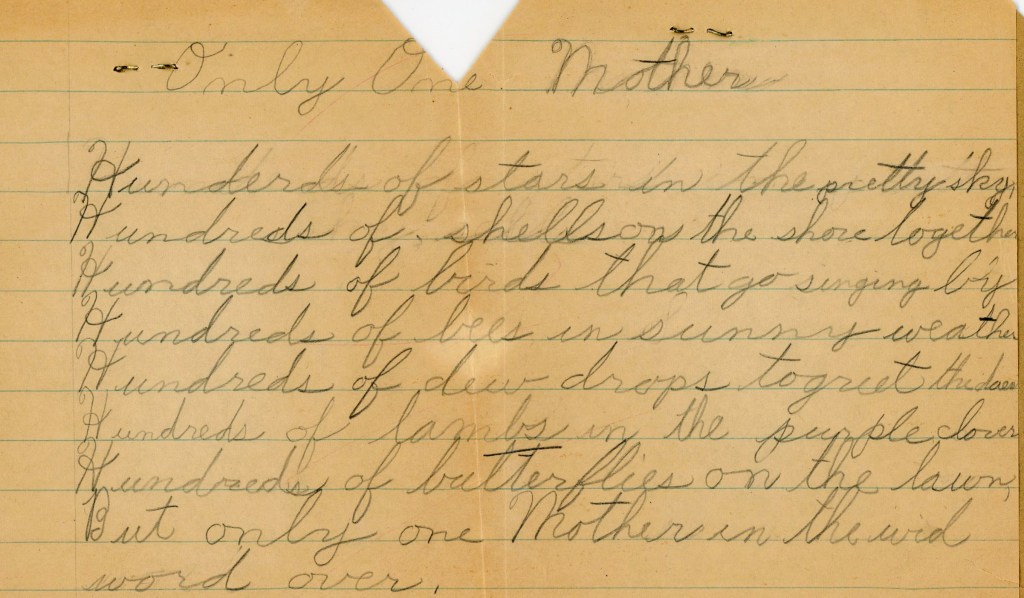 Only One Mother
Hunderds of stars in the pretty sky,
Hundreds of shells on the shore together
Hundreds of birds that go singing by
Hundreds of bees in sunny weather
Hundreds of dew drops to greet the
Hundreds of lambs in the purple clover
Hundreds of butterflies on the lawn,
But only one Mother in the wid
word over.